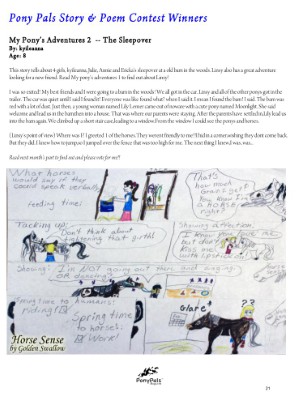 Pony Pals Story & Poem Contest Winners
My Pony's Adventures 2 -- The Sleepover
By: kydeanna
Age: 8
This story tells about 4 girls, kydeanna, Julie, Annie and Ericka's sleepover at a old barn in the woods. Lexsy also has a great adventure
looking for a new friend. Read My pony's adventures 2 to find out about Lexsy!
I was so excited! My best friends and I were going to a barn in the woods! We all got in the car. Lexsy and all of the other ponys got in the
trailer. The car was quiet until I said I found it! Everyone was like found what? when I said it. I mean I found the barn I said. The barn was
red with a lot of dust. Just then, a young woman named Lily Lemer came out of no ware with a cute pony named Moonlight. She said
welcome and lead us in the barn then into a house. That was where our parents were staying. After the parents have settled in Lily lead us
into the barn again. We climbed up a short stair case, leading to a window. From the window I could see the ponys and horses.
( Lexsy's point of view) Where was I? I greeted 1 of the horses. They weren't friendly to me! I hid in a corner wishing they dont come back.
But they did. I knew how to jump so I jumped over the fence that was too high for me. The next thing I knew I was, was...
Read next month's part to find out and please vote for me!!!
What horses
would say if they
could speak verbally
feeding time:
That's
how much
grain I get?
Tacking up:
Don't think about
tightening that girth!
Showing affection
Showing:
I'm NOT going out there and
or dancing!
to humans:
riding!
Spring time
to horses:
Work!
Glare
??
Horse Sense
by Golden Swallow
PonyPals
21